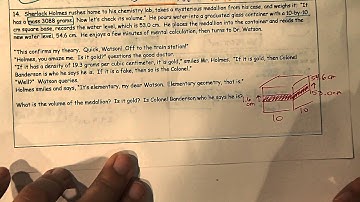 14. Sherlock Holmes rushes home to his chemistry lab, takes a mysterious medallion from his case, and weighs it. "It
has a mass 3088 grams. Now let's check its volume." He pours water into a graduated glass container with a 10-by-10
cm square base, records the water level, which is 53.0 cm. He places the medallion into the container and reads the
new water level, 54.6 cm. He enjoys a few minutes of mental calculation, then turns to Dr. Watson.
"This confirms my theory. Quick, Watson! Off to the train station!"
"Holmes, you amaze me. Is it gold?" questions the good doctor.
"If it has a density of 19.3 grams per cubic centimeter, it is gold," smiles Mr. Holmes. "If it is gold, then Colonel
Banderson is who he says he is. If it is a fake, then so is the Colonel."
"Well?" Watson queries.
Holmes smiles and says, "It's elementary, my dear Watson. Elementary geometry, that is."
What is the volume of the medallion? Is it gold? Is Colonel Banderson who he says he is?
54.6 cm
53.0 cm
1.6
cm
10
10